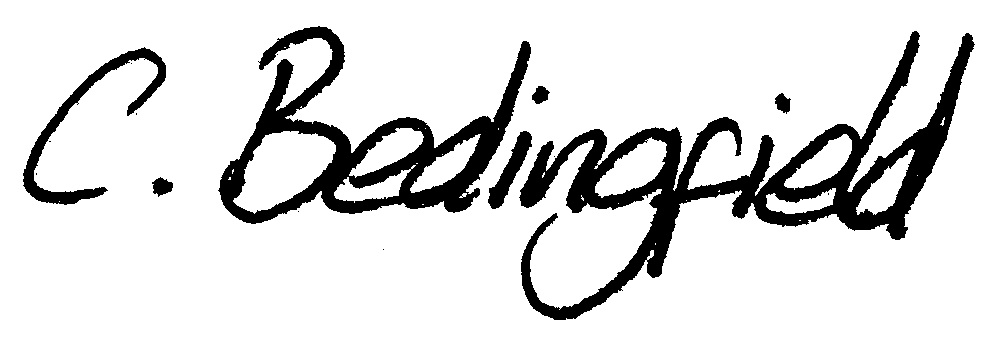 C. Bedingfield